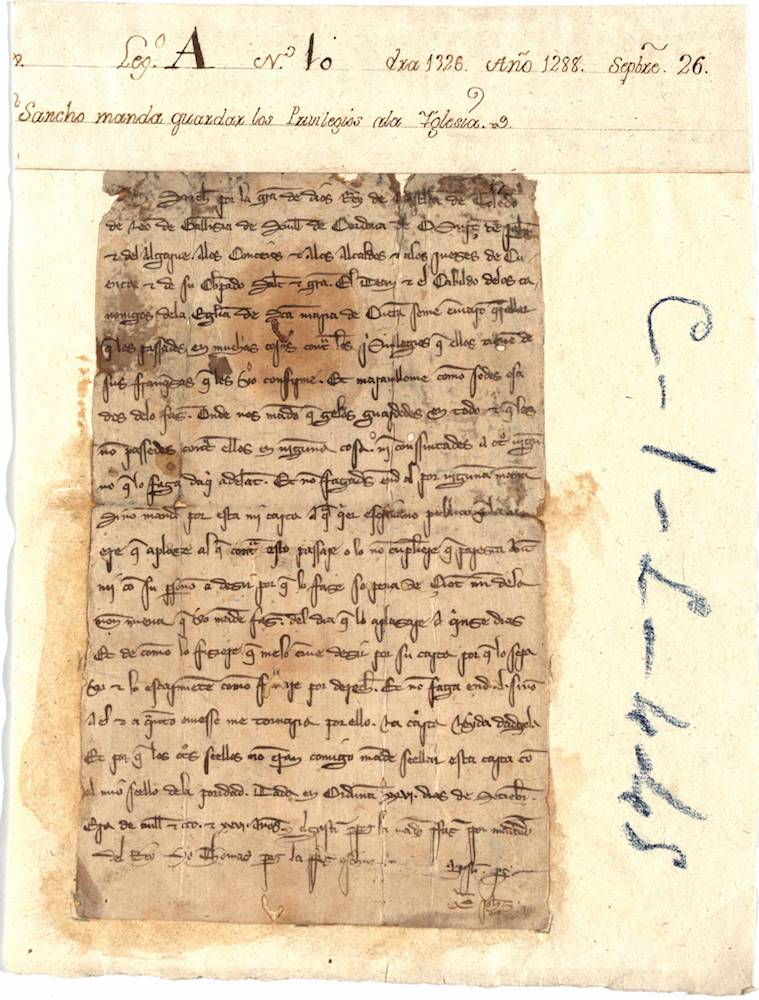 Leg.º A N.º 10 Era 1326. Año 1288. Sepbre. 26.
Sancho manda guardar los Privilegios ala Yglesia.
por la gra de dios Rey de Castiella de Toledo
de Leon de Gallizia de Seuilla de Cordoua de Murcia de Jahen
& del Algarue. Alos Conceios & Alos Alcaldes & alos jueges de Cu
enca & de su Obpado Salut & gra. El Dean & el Cabildo delos ca
nonigos dela Eglia de Sca maria de Cuenca seme enuiaron querellar
q les passades en muchas cosas contra los priuilegios q ellos tienen de
sus franqzas q les yo confirme. Et marauillome como sodes osa
dos delo faz. Onde uos mando q gelos guardedes en todo & q les
no passedes contra ellos en ninguna cosa. ni consintades a otro ningu
no q lo faga daqui adelant. Et no fagades end al por ninguna mana
Sino mando por esta mi carta a qual quier escriuano publico
q aplaze al q contra esto passare o lo no cumpliere q paresca ante
mi con su psona a dezir por q lo faze so pena de Cient mr dela
mon nueua q yo mande faz. del dia q lo aplazare a quinze dias
Et de como lo fiziere q melo enuie dezir por su carta por q lo sepa
yo & lo escarmiente como fuere por derecho. Et no faga end al. sino
A el & a quanto ouiesse me tornaria por ello. La carta leyda dadgela
Et por q los otros seellos no eran comigo mande seellar esta carta co
el mio seello dela poridad. Dada en Orduna xxvi. dias de Setiebr.
Era de mill & ccc. & xxvi Annos. la mado faz por mandado
del Rey Yo Thomas la fiz escriuir